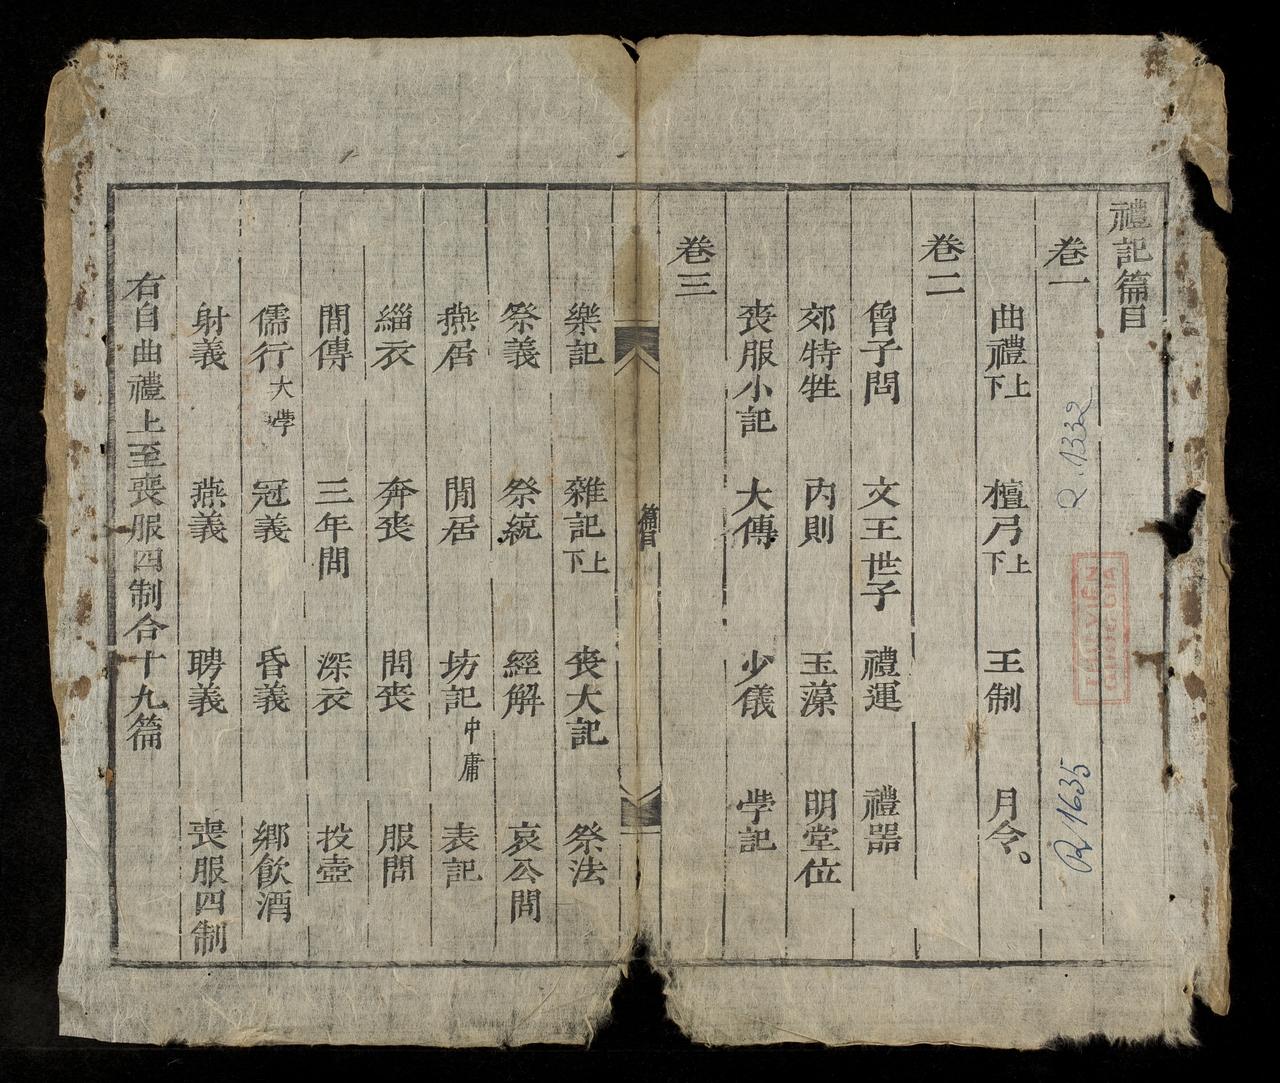 禮記篇目
卷一
曲禮上下 檀弓上下 王制 月令。
卷二
曾子問 文王世子 禮運 禮器
郊特牲 內則 玉藻 明堂位
喪服小記 大傳 少儀 學記
卷三
篇目
樂記 雜記上下 喪大記 祭法
祭義 祭統 經解 哀公問
燕居 閒居 坊記中庸 表記
緇衣 奔喪 問喪 服問
間傳 三年間 深衣 投壺
儒行大學 冠義 昏義 鄉飲酒
射義 燕義 聘義 喪服四制
右自曲禮上至喪服四制合十九篇
R.1332
THƯ VIỆN
QUỐC GIA
R1635